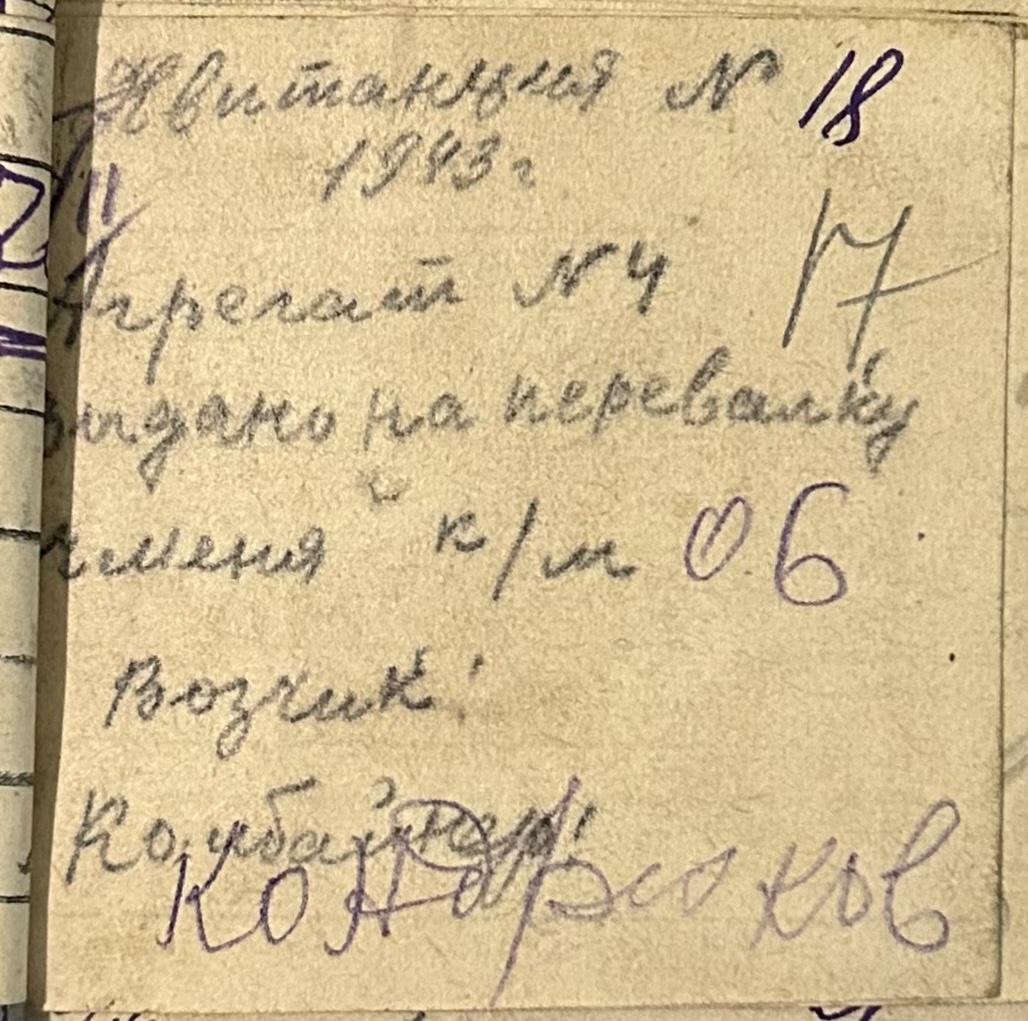 Квитанция № 18
1943 г
Агрегат № 4 17
выдано на перевалку
ячменя к/м 0.6
Возчик:
Комбайнер: